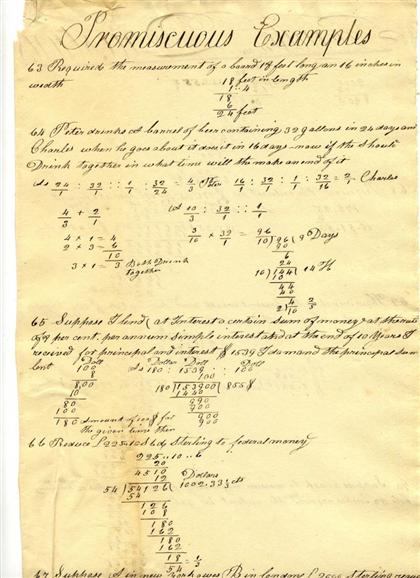 Promiscuous Examples
63 Required the measurement of a board 18 feet long an 16 inches in
width
18 feet in length
1..4
18
6
24 feet
64 Peter drinks a barrel of beer containing 32 gallons in 24 days and
Charles when he goes about it does it in 16 days now if the should
Drink together in what time will the make an end of it
As 24/1 : 32/1 :: 1/1 : 32/24 = 4/3 Peter 16/1 : 32/1 : 1/1 : 32/16 = 2/1 Charles
4/3 + 2/1
As 10/3 : 32/1 :: 1/1
4 x 1 = 4
2 x 3 = 6
10
3 x 1 = 3 Both Drink
together
3/10 x 32/1 = 96/10
10)96(9 Days
90
6
24
10)144(14 H
10
44
40
2)4/10 2/5
65 Suppose I lend at Interest a certain sum of money at the rate
of 8 per cent. per annum simple interest and at the end of 10 Years I
received for principal and interest $ 1539 I demand the principal sum
lent
Doll
100
8
800
10
80
100
180 Amount of 100 $ for
the given time then
Dollar Doll Doll
As 180 : 1539 :: 100
100
180)153900(855 $
1440
990
900
900
900
66 Reduce £ 225..10 S 6 d Sterling to federal money
225..10..6
20
4510
12
54)54126(1002.33 1/3 cts
Dollars
54
126
108
180
162
180
162
18/54 = 1/3
67 Suppose A in New York owes B in london £ 2000 Sterling